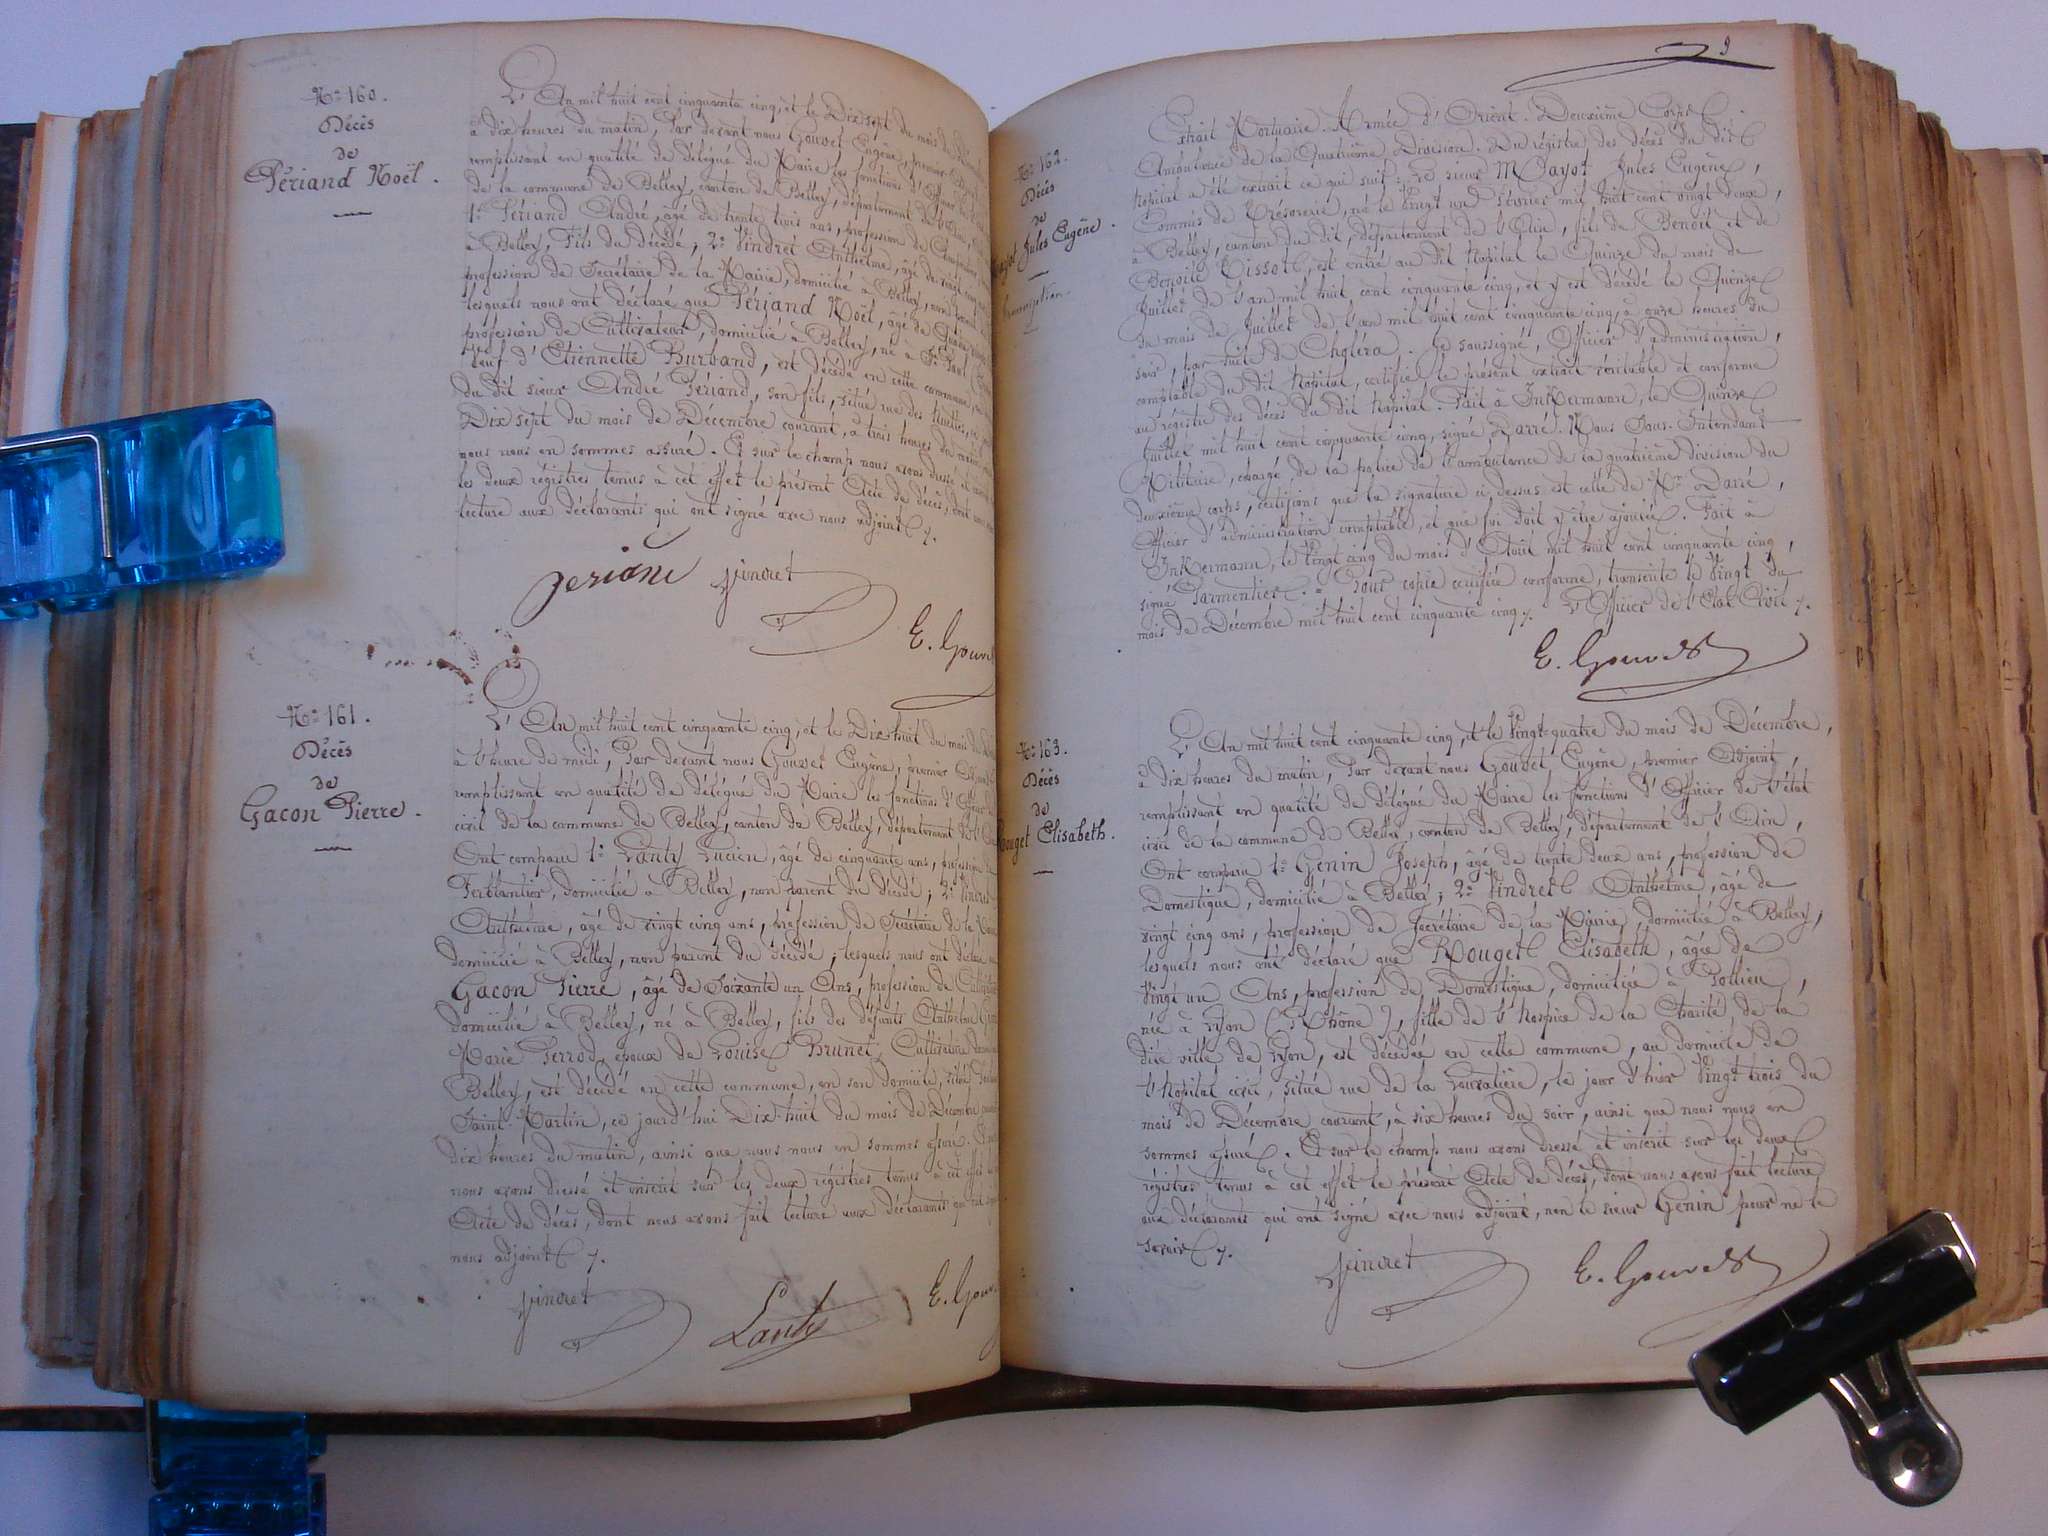 N.° 160.
Décès
de
Périand Noël.
L'An mil huit cent cinquante cinq, et le Dix sept du mois de
à dix heures du matin, Par devant nous Gouvet Eugène, premier
remplissant en qualité de délégué du Maire les fonctions d'Officier
de la commune de Belley, canton de Belley, département de l'Ain,
1.° Périand André, âgé de trente trois ans, profession de
à Belley, Fils du décédé; 2.° Vindret Anthelme, âgé de vingt cinq
profession de Secrétaire de la Mairie, domicilié à Belley, non
lesquels nous ont déclaré que Périand Noël, âgé de
profession de Cultivateur, domicilié à Belley, né à St. Paul
veuf d'Etiennette Burband, est décédé en cette commune,
du dit sieur André Périand, son fils, situé rue des
Dix sept du mois de Décembre courant, à trois heures du matin,
nous nous en sommes assuré. Et sur le champ nous avons dressé et
les deux régistres tenus à cet effet le présent Acte de décès, dont
lecture aux déclarants qui ont signé avec nous adjoint.
periand Vindret
E. Gouvet
N.° 161.
Décès
de
Gacon Pierre.
L'An mil huit cent cinquante cinq, et le Dix huit du mois de
à l'heure de midi, Par devant nous Gouvet Eugène, premier
remplissant en qualité de délégué du Maire les fonctions d'Officier
civil de la commune de Belley, canton de Belley, département de l'Ain
Ont comparu 1.° Lanty Lucien, âgé de cinquante ans, profession de
Ferblantier, domicilié à Belley, non parent du décédé; 2.° Vindret
Anthelme, âgé de vingt cinq ans, profession de Secrétaire de la Mairie
domicilié à Belley, non parent du décédé; lesquels nous ont déclaré que
Gacon Pierre, âgé de Soixante un Ans, profession de
domicilié à Belley, né à Belley, fils des défunts Anthelme
Marie Perrod, époux de Louise Brunet, Cultivatrice
Belley, est décédé en cette commune, en son domicile, situé
Saint-Martin, ce jourd'hui Dix-huit du mois de Décembre
dix heures du matin, ainsi que nous nous en sommes assuré.
nous avons dressé et inscrit sur les deux régistres tenus à cet effet
Acte de décès, dont nous avons fait lecture aux déclarants qui ont
nous adjoint.
Vindret Lanty E. Gouvet
9
N.° 162.
Décès
de
Jules Eugène.
Transcription.
Extrait Mortuaire. Armée d'Orient. Deuxième Corps.
Ambulance de la Quatrième Division. Du régistre des décès du dit
hôpital a été extrait ce qui suit: Le sieur Mayot Jules Eugène,
Commis de Trésorerie, né le Vingt un Février mil huit cent vingt deux,
à Belley, canton du dit, département de l'Ain, fils de Benoit et de
Benoite Tissot, est entré au dit hôpital le Quinze du mois de
Juillet de l'an mil huit cent cinquante cinq, et y est décédé le Quinze
du mois de Juillet de l'an mil huit cent cinquante cinq, à onze heures du
soir, par suite de Choléra. Je soussigné, Officier d'administration,
comptable du dit hôpital, certifie le présent extrait véritable et conforme
au régistre des décès du dit hôpital. Fait à Inkermann, le Quinze
Juillet mil huit cent cinquante cinq, signé Darré. Nous Sous-Intendant
Militaire, chargé de la police de l'ambulance de la quatrième division du
deuxième corps, certifions que la signature ci dessus est celle de Mr. Darré,
Officier d'administration comptable, et que foi doit y être ajoutée. Fait à
Inkermann, le Vingt cinq du mois d'Août mil huit cent cinquante cinq,
signé Parmentier. = Pour copie certifiée conforme, transcrite le Vingt du
mois de Décembre mil huit cent cinquante cinq. L'Officier de l'Etat Civil.
E. Gouvet
N.° 163.
Décès
de
Rouget Elisabeth.
L'An mil huit cent cinquante cinq, et le Vingt-quatre du mois de Décembre,
à dix heures du matin, Par devant nous Gouvet Eugène, premier Adjoint,
remplissant en qualité de délégué du Maire les fonctions d'Officier de l'état
civil de la commune de Belley, canton de Belley, département de l'Ain,
Ont comparu 1.° Genin Joseph, âgé de trente deux ans, profession de
Domestique, domicilié à Belley; 2.° Vindret Anthelme, âgé de
vingt cinq ans, profession de Secrétaire de la Mairie, domicilié à Belley,
lesquels nous ont déclaré que Rouget Elisabeth, âgée de
Vingt un Ans, profession de Domestique, domiciliée à Pollieu,
née à Lyon (Rhône), fille de l'hospice de la Charité de la
dite ville de Lyon, est décédée en cette commune, au domicile de
l'hôpital civil, situé rue de la Louvatière, le jour d'hier Vingt trois du
mois de Décembre courant, à six heures du soir, ainsi que nous nous en
sommes assuré. Et sur le champ nous avons dressé et inscrit sur les deux
régistres tenus à cet effet le présent Acte de décès, dont nous avons fait lecture
aux déclarants qui ont signé avec nous adjoint, non le sieur Genin pour ne le
savoir.
Vindret E. Gouvet